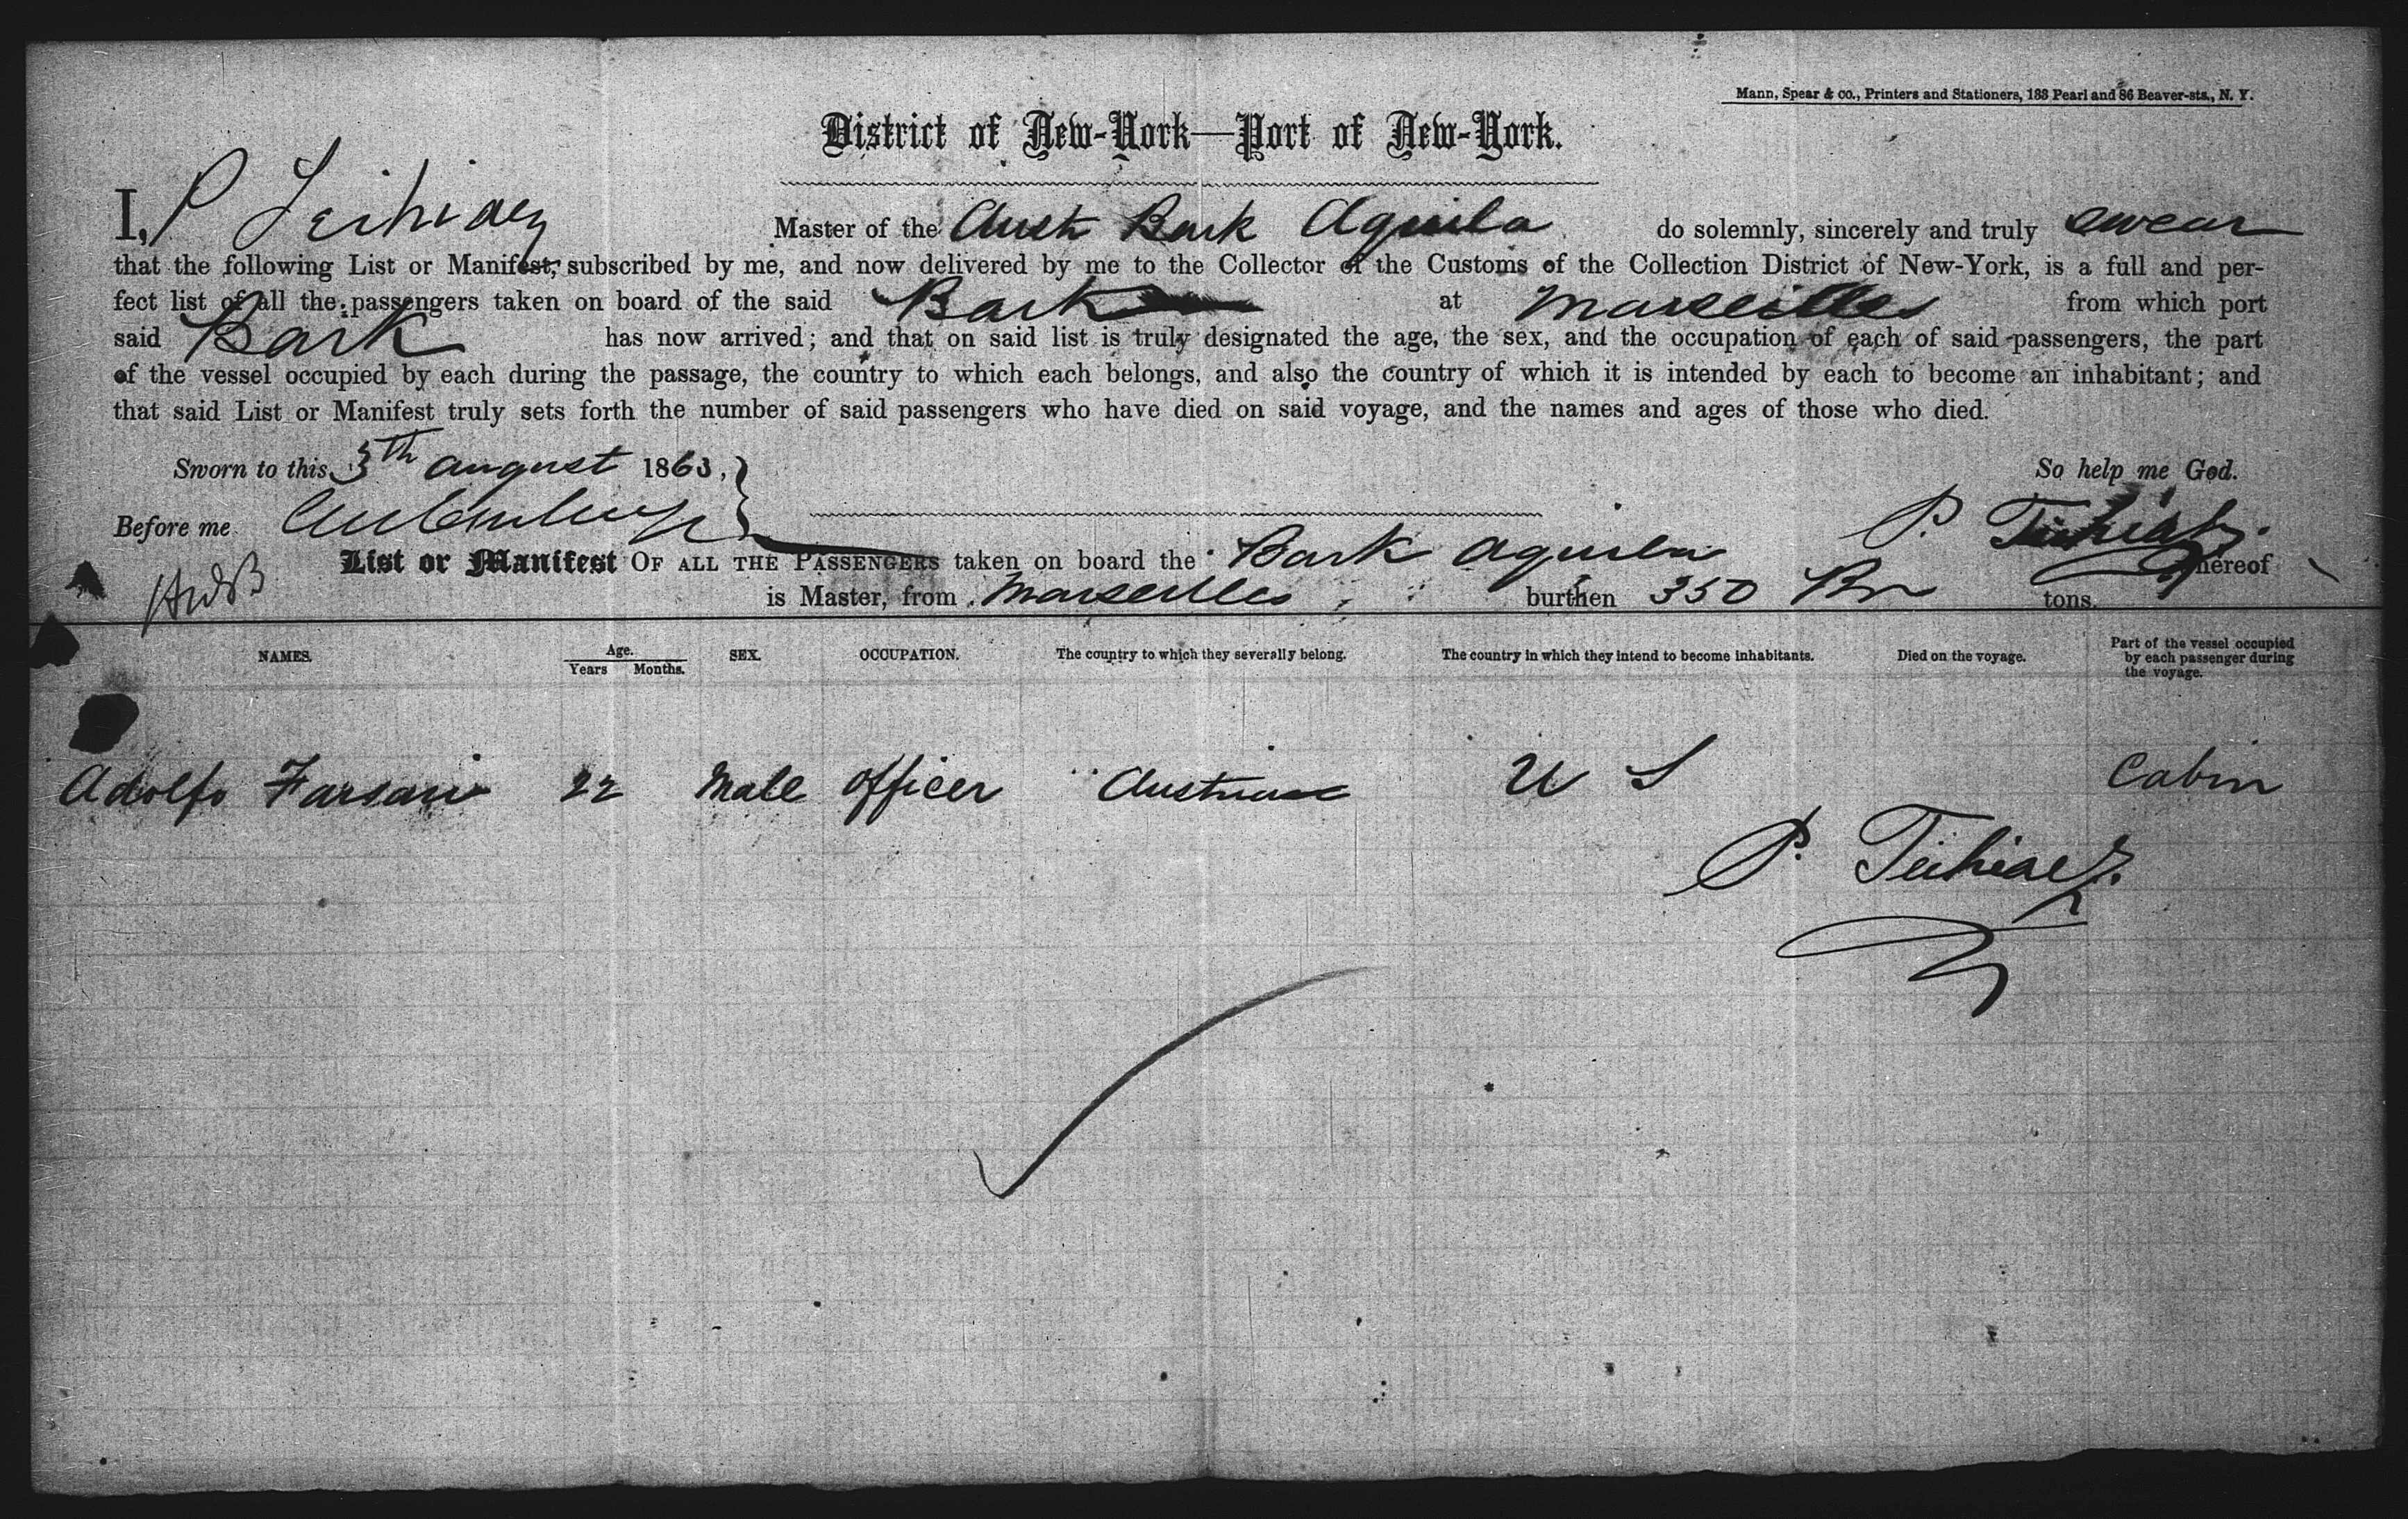 Mann, Spear & co., Printers and Stationers, 133 Pearl and 86 Beaver-sts., N. Y.
District of New-York—Port of New-York.
I, P Master of the Aust Bark Aquila do solemnly, sincerely and truly swear
that the following List or Manifest, subscribed by me, and now delivered by me to the Collector of the Customs of the Collection District of New-York, is a full and per-
fect list of all the passengers taken on board of the said Bark at Marseilles from which port
said Bark has now arrived; and that on said list is truly designated the age, the sex, and the occupation of each of said passengers, the part
of the vessel occupied by each during the passage, the country to which each belongs, and also the country of which it is intended by each to become an inhabitant; and
that said List or Manifest truly sets forth the number of said passengers who have died on said voyage, and the names and ages of those who died.
Sworn to this th august 1863, So help me God.
Before me P.
List or Manifest OF ALL THE PASSENGERS taken on board the Bark Aquila whereof
is Master, from Marseilles, burthen 350 tons.
NAMES. Age. Years Months. SEX. OCCUPATION. The country to which they severally belong. The country in which they intend to become inhabitants. Died on the voyage. Part of the vessel occupied by each passenger during the voyage.
Adolfo 22 Male Officer Austria U S Cabin
P.